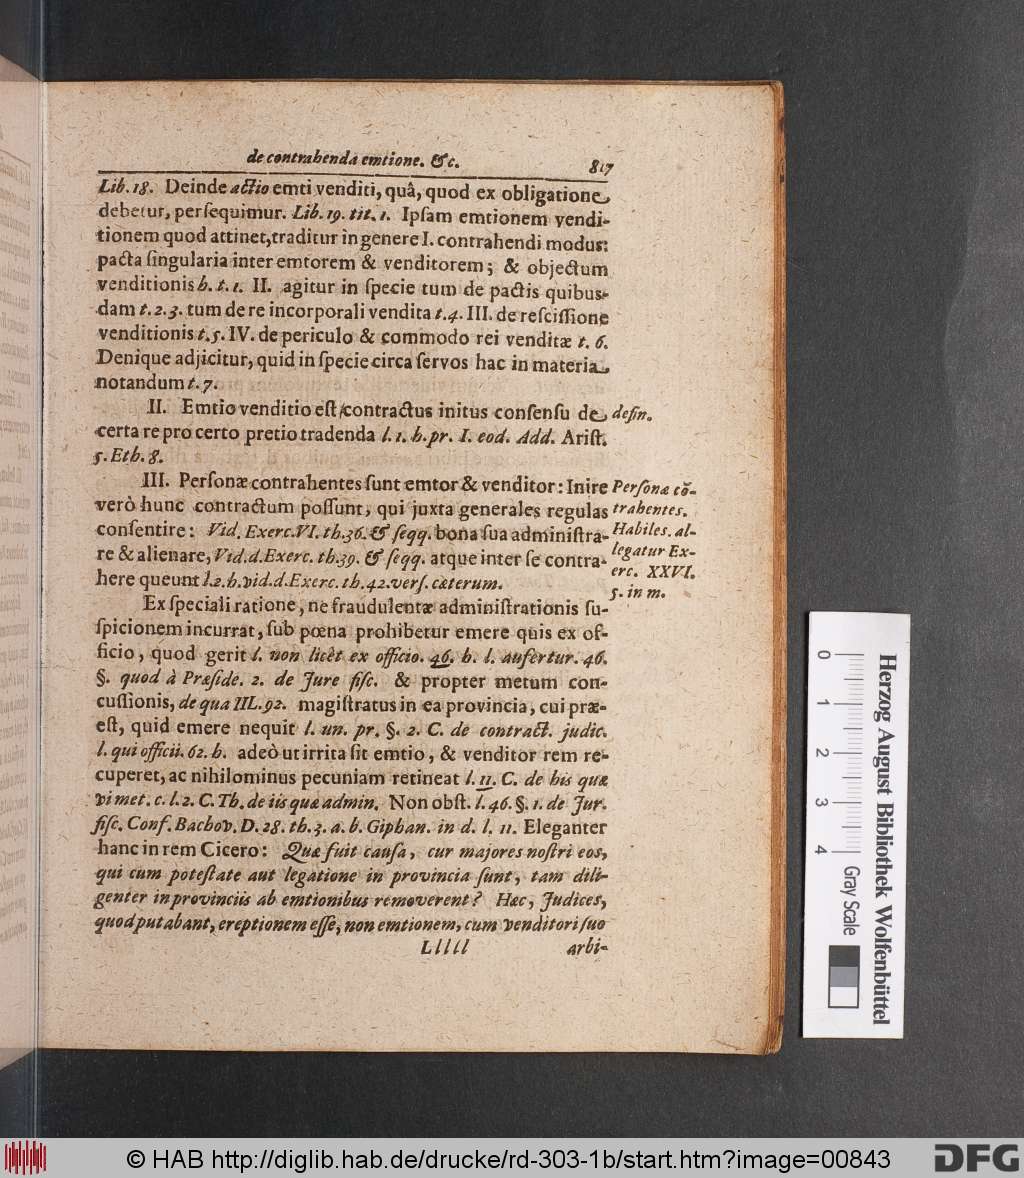 de contrahenda emtione. &c. 817
Lib. 18. Deinde actio emti venditi, quâ, quod ex obligatione
debetur, perſequimur. Lib. 19. tit. 1. Ipſam emtionem vendi-
tionem quod attinet, traditur in genere I. contrahendi modus:
pacta ſingularia inter emtorem & venditorem; & objectum
venditionis h. t. 1. II. agitur in ſpecie tum de pactis quibus-
dam t. 2. 3. tum de re incorporali vendita t. 4. III. de reſciſſione
venditionis t. 5. IV. de periculo & commodo rei venditæ t. 6.
Denique adjicitur, quid in ſpecie circa ſervos hac in materia
notandum t. 7.
II. Emtio venditio eſt contractus initus conſenſu de
defin.
certa re pro certo pretio tradenda l. 1. h. pr. I. eod. Add. Ariſt.
5. Eth. 8.
III. Perſonæ contrahentes ſunt emtor & venditor: Inire
Perſonæ cõ-
verò hunc contractum poſſunt, qui juxta generales regulas
trahentes.
conſentire: Vid. Exerc. VI. th. 36. & ſeqq. bona ſua adminiſtra-
Habiles. al-
re & alienare, Vid. d. Exerc. th. 39. & ſeqq. atque inter ſe contra-
legatur Ex-
here queunt l. 2. h. vid. d. Exerc. th. 42. verſ. cæterum.
erc. XXVI.
5. in m.
Ex ſpeciali ratione, ne fraudulentæ adminiſtrationis ſu-
ſpicionem incurrat, ſub pœna prohibetur emere quis ex of-
ficio, quod gerit l. non licêt ex officio. 46. h. l. aufertur. 46.
§. quod à Præſide. 2. de Jure fiſc. & propter metum con-
cuſſionis, de qua III. 92. magiſtratus in ea provincia, cui præ-
eſt, quid emere nequit l. un. pr. §. 2. C. de contract. judic.
l. qui officii. 62. h. adeò ut irrita ſit emtio, & venditor rem re-
cuperet, ac nihilominus pecuniam retineat l. 11. C. de his quæ
vi met. c. l. 2. C. Th. de iis quæ admin. Non obſt. l. 46. §. 1. de Jur.
fiſc. Conf. Bachov. D. 28. th. 3. a. b. Giphan. in d. l. 11. Eleganter
hanc in rem Cicero: Quæ fuit cauſa, cur majores noſtri eos,
qui cum poteſtate aut legatione in provincia ſunt, tam dili-
genter in provinciis ab emtionibus removerent? Hæc, Judices,
quod putabant, ereptionem eſſe, non emtionem, cum venditori ſuo
Lllll arbi-
0 1 2 3 4 Gray Scale
Herzog August Bibliothek Wolfenbüttel
© HAB http://diglib.hab.de/drucke/rd-303-1b/start.htm?image=00843
DFG